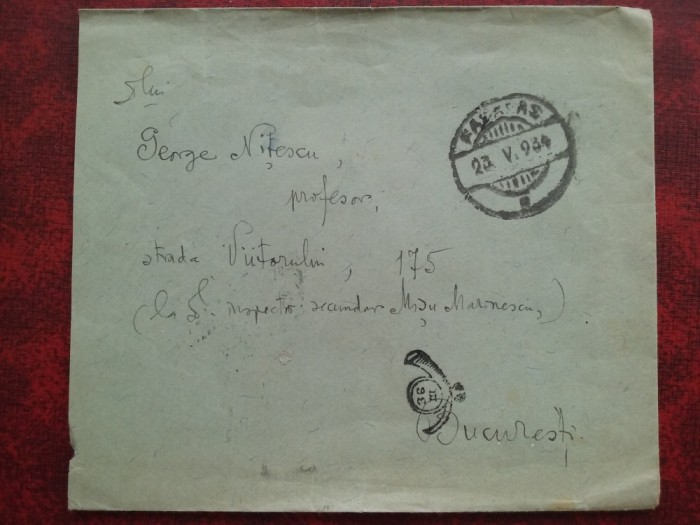 Dlui
George Nițescu,
profesor,
strada Viitorului, 175
(la D. inspector secundar Mișu Marinescu,)
București.
FĂGĂRAȘ
23. V. 934
III
36